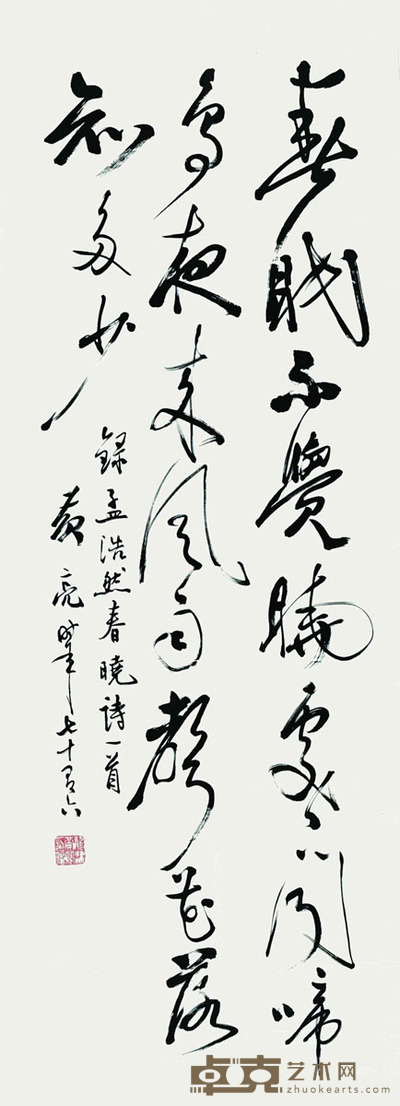 春眠不覺曉處々聞啼
鳥夜来風雨聲花落
知多少
錄孟浩然春曉詩一首
黄亮時年七十有六
卓克艺术网
zhuokearts.com